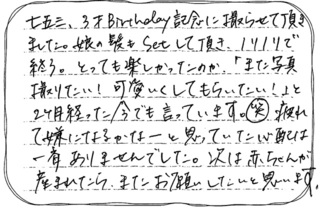 七五三、3才Birthday記念に撮らせて頂き
ました。娘の髪もSetして頂き、ノリノリで
終る。とっても楽しかったのか、「また写真
撮りたい!可愛いくしてもらいたい!」と
2ヶ月経った今でも言っています。笑 疲れ
て嫌になるかなーと思っていた心配は
一番ありませんでした。次は赤ちゃんが
産まれたら、またお願いしたいと思います。